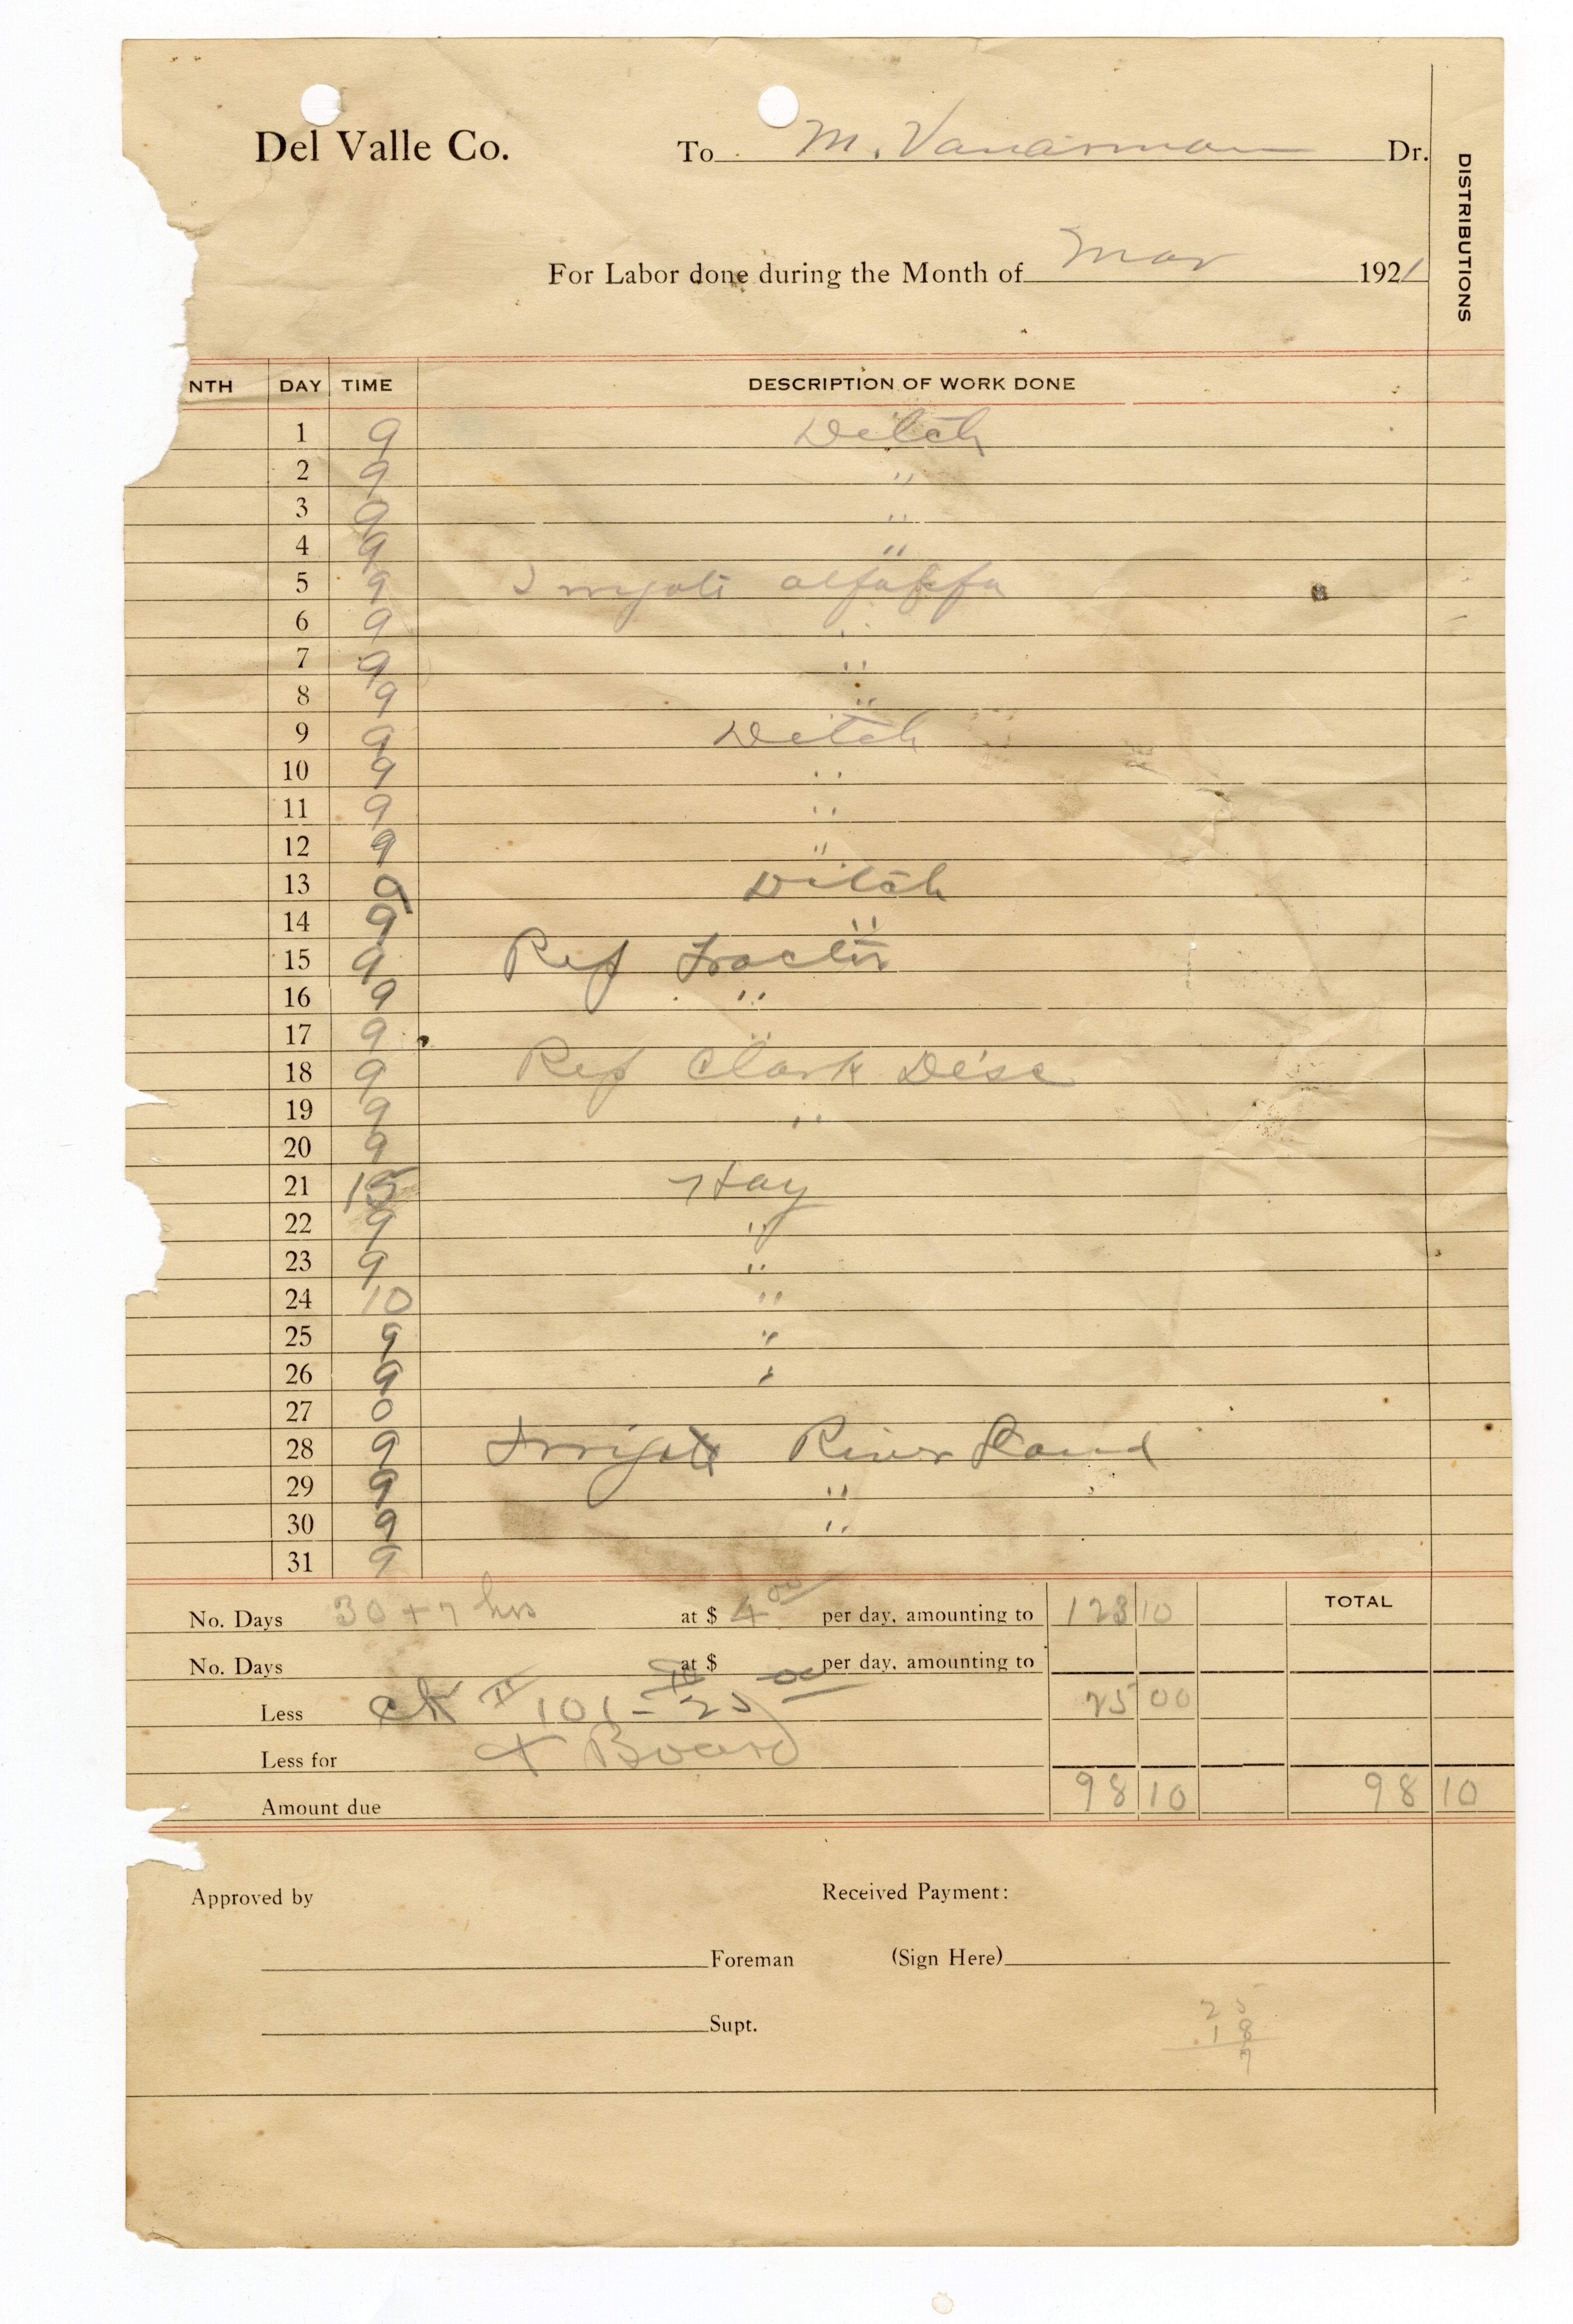 Del Valle Co. To M. Vanarman Dr.
DISTRIBUTIONS
For Labor done during the Month of Mar 1921
NTH DAY TIME DESCRIPTION OF WORK DONE
1 9 Ditch
2 9 "
3 9 "
4 9 "
5 9 Irrygate alfalfa
6 9 "
7 9 "
8 9 "
9 9 Ditch
10 9 "
11 9 "
12 9 "
13 Ditch
14 9 "
15 9 Rep Tractor
16 9 "
17 9 "
18 9 Rep Clark Disc
19 9 "
20 9
21 15 Hay
22 9 "
23 9 "
24 10 "
25 9 "
26 9 "
27 0
28 9 Irrigate River Land
29 9 "
30 9 "
31 9
No. Days 30 + 7 hrs at $ 4 00 per day, amounting to 123 10 TOTAL
No. Days at $ per day, amounting to
Less ck # 101 - 25 00 25 00
Less for + Board
Amount due 98 10 98 10
Approved by Received Payment:
Foreman (Sign Here)
Supt.
25
18
7